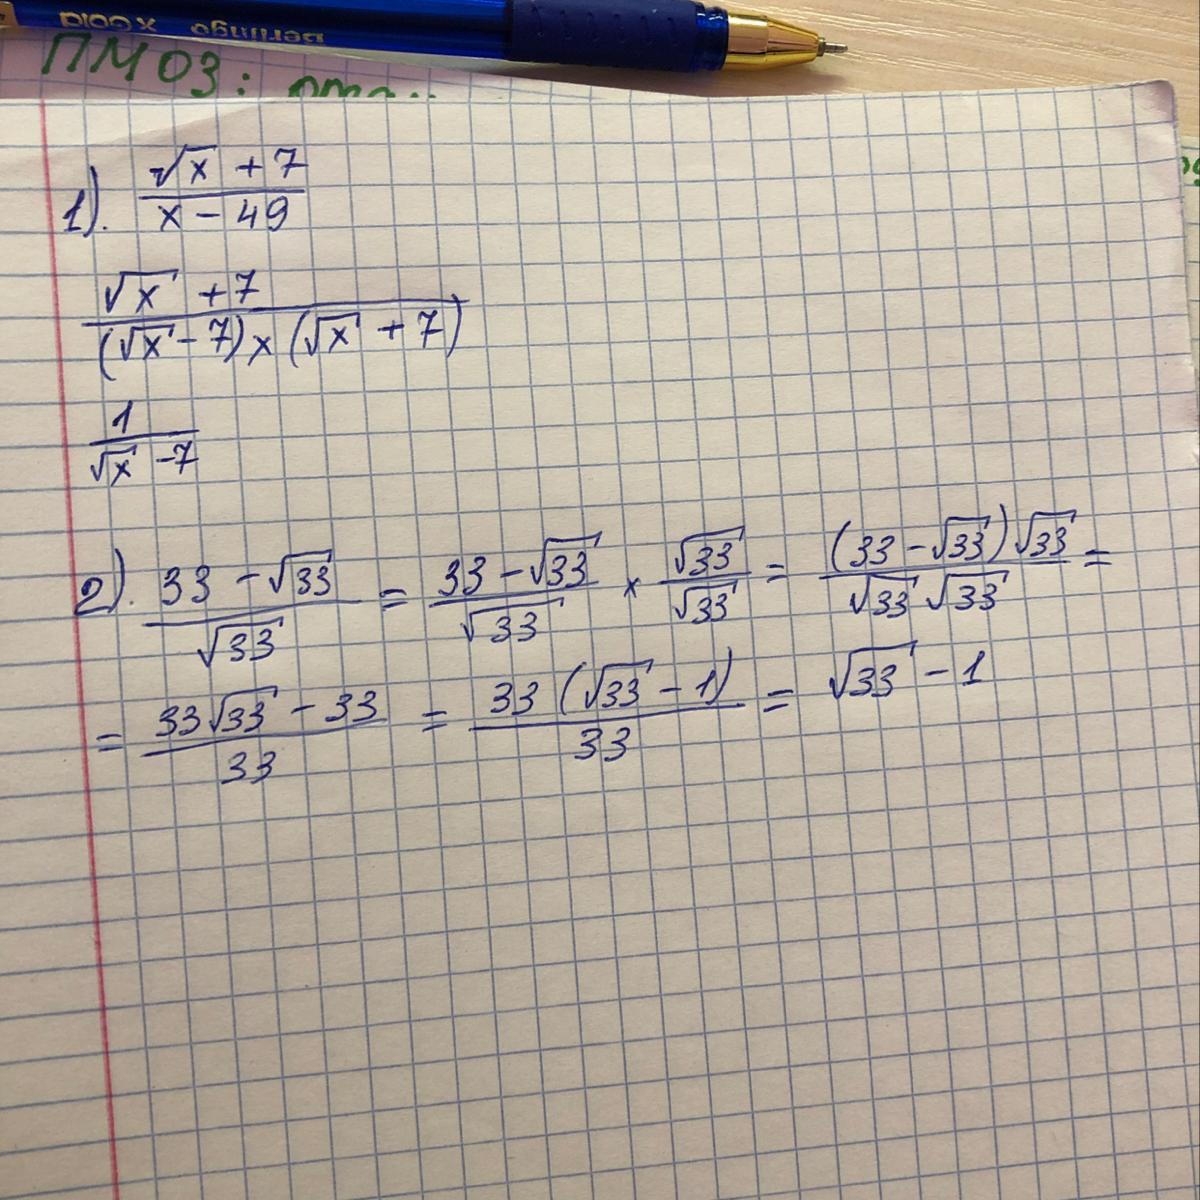 Berlingo x Gold
ПМ03:
1). (√x + 7)/(x - 49)
(√x + 7)/((√x - 7) x (√x + 7))
1/(√x - 7)
2). (33 - √33)/√33 = (33 - √33)/√33 x √33/√33 = ((33 - √33)√33)/(√33 √33) =
= (33√33 - 33)/33 = (33(√33 - 1))/33 = √33 - 1